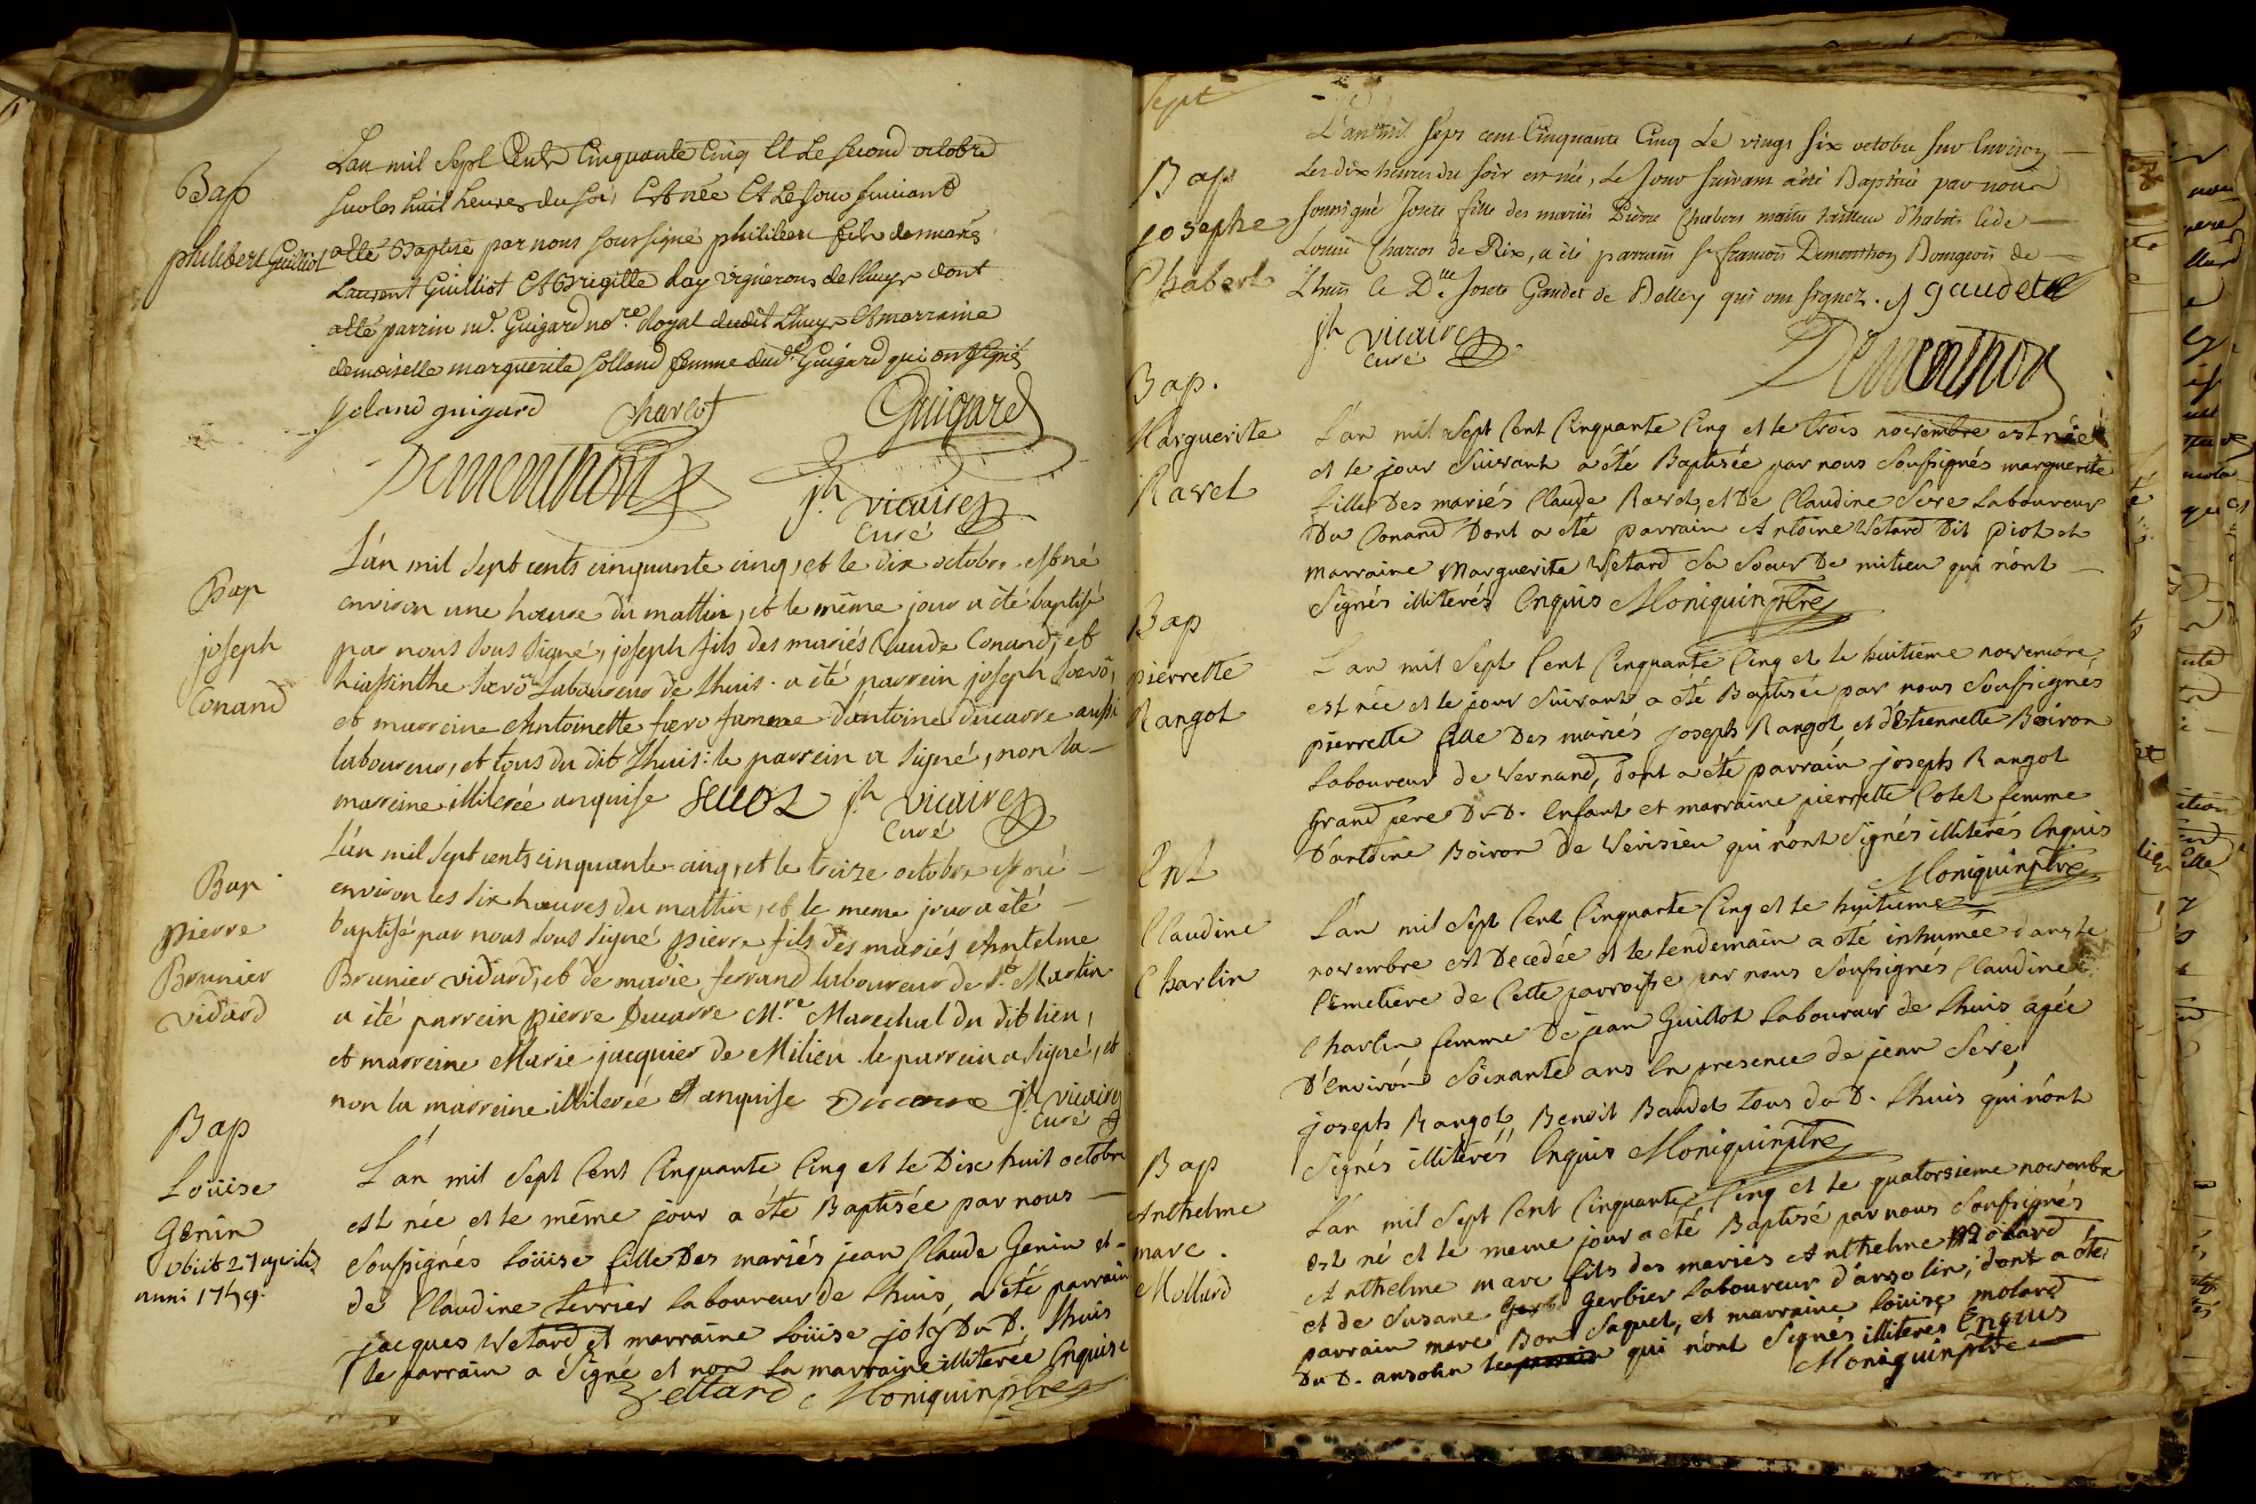 Bap
philibert Guilliot
Lan mil Sept Cents Cinquante Cinq Et Le second octobre
sur les huit heures du soir Est née Et Le jour suivant
a été Baptisé par nous soussigné philibert fils de mariés
Laurent Guilliot Et Brigitte Lay vignerons de Lhuys dont
a été parrin md. Guigard nore. Royal dudit Lhuys Et marraine
demoiselle marguerite jolland femme dudt. Guigard qui ont signés
jolland guigard Charlot Guigard
Demonthon jh. vicaire
Curé
Bap
joseph
Conand
L'an mil Sept cents cinquante cinq, et le dix octobre est né
environ une heure du mattin, et le même jour a été baptisé
par nous sous signé, joseph fils des mariés Claude Conand, et
hiassinthe Laboureur de Lhuis. a été parrein joseph
et marreine Antoinette femme d'antoine Ducarre aussi
laboureur, et tous du dit Lhuis: le parrein a signé, non la
marreine illiterée enquise jh. vicaire
Curé
Bap
pierre
Brunier
vidard
L'an mil sept cents cinquante-cinq, et le treize octobre est né
environ les six heures du mattin, et le meme jour a été
baptisé par nous sous signé pierre fils des mariés Antelme
Brunier vidard, et de marie ferrand laboureur de St. Martin
a été parrein pierre Ducarre Mre. Marechal du dit lieu,
et marreine Marie jacquier de Milieu. le parrein a signé, et
non la marreine illiterée et enquise Ducarre jh. vicaire
Curé
Bap
Loüise
Genin
obiit 27 aprilis
anni 1759.
L'an mil Sept Cent Cinquante Cinq et le Dix huit octobre
est née et le même jour a été Baptisée par nous
Soussignés Loüise fille Des mariés jean Claude Genin et
de Claudine terrier laboureur de Lhuis, a été parrain
jacques Wetard et marraine Loüise joly Du D. Lhuis
le parrain a Signé et non la marraine illiterée Enquise
Vettard Moniquin ptre
Sept
Bap
josephe
Chabert
L'an mil sept cent Cinquante Cinq Le vingt six octobre sur Environ
Les dix heures du soir est née, Le jour suivant a été Baptisée par nous
soussigné Josete fille des mariés Pierre Chabert maitre tailleur d'habits et de
Louise Charcot de Rix, a été parrain sr. francois Demonthon Bourgeois de
Lhuis et Dlle. Josete Gaudet de Belley qui ont signez. J gaudet
jh. vicaire
Curé
Demonthon
Bap.
Marguerite
Ravet
L'an mil Sept Cent Cinquante Cinq et le trois novembre est née
et le jour Suivant a été Baptisée par nous Soussignés marguerite
fille Des mariés Claude Ravet, et De Claudine Seve Laboureur
Du Conand Dont a été parrain Antoine Wetard Dit piot et
marraine Marguerite Wetard Sa Soeur De milieu qui n'ont
Signés illiterés Enquis Moniquin ptre
Bap
pierrette
Rangot
L'an mil Sept Cent Cinquante Cinq et le huitieme novembre,
est née et le jour Suivant a été Baptisée par nous Soussignés
pierrette fille Des mariés joseph Rangot et d'Etiennette Boiron
Laboureur de Vernand, dont a été parrain joseph Rangot
Grand pere Du D. Enfant et marraine pierrette Cotet femme
D'antoine Boiron de Verisieu qui n'ont Signés illiterés Enquis
Moniquin ptre
Ent
Claudine
Charlin
L'an mil Sept Cent Cinquante Cinq et le huitieme
novembre est Decedée et le lendemain a été inhumée dans le
Cimetiere de Cette parroisse par nous Soussignés Claudine
Charlin femme De jean Guillot laboureur de Lhuis agée
D'Environ Soixante ans En presence de jean Seve,
joseph Rangot, Benoit Baudet tous du D. Lhuis qui n'ont
Signés illiterés Enquis Moniquin ptre
Bap
Anthelme
marc.
Mollard
L'an mil Sept Cent Cinquante Cinq et le quatorsieme novembre
est né et le meme jour a été Baptisé par nous Soussignés
Anthelme marc fils des mariés Anthelme Molard
et de Susane Gerbier laboureur d'ansolin, dont a été
parrain marc Bon Saquet, et marraine Loüise molard
Du D. ansolin qui n'ont Signés illiterés Enquis
Moniquin ptre